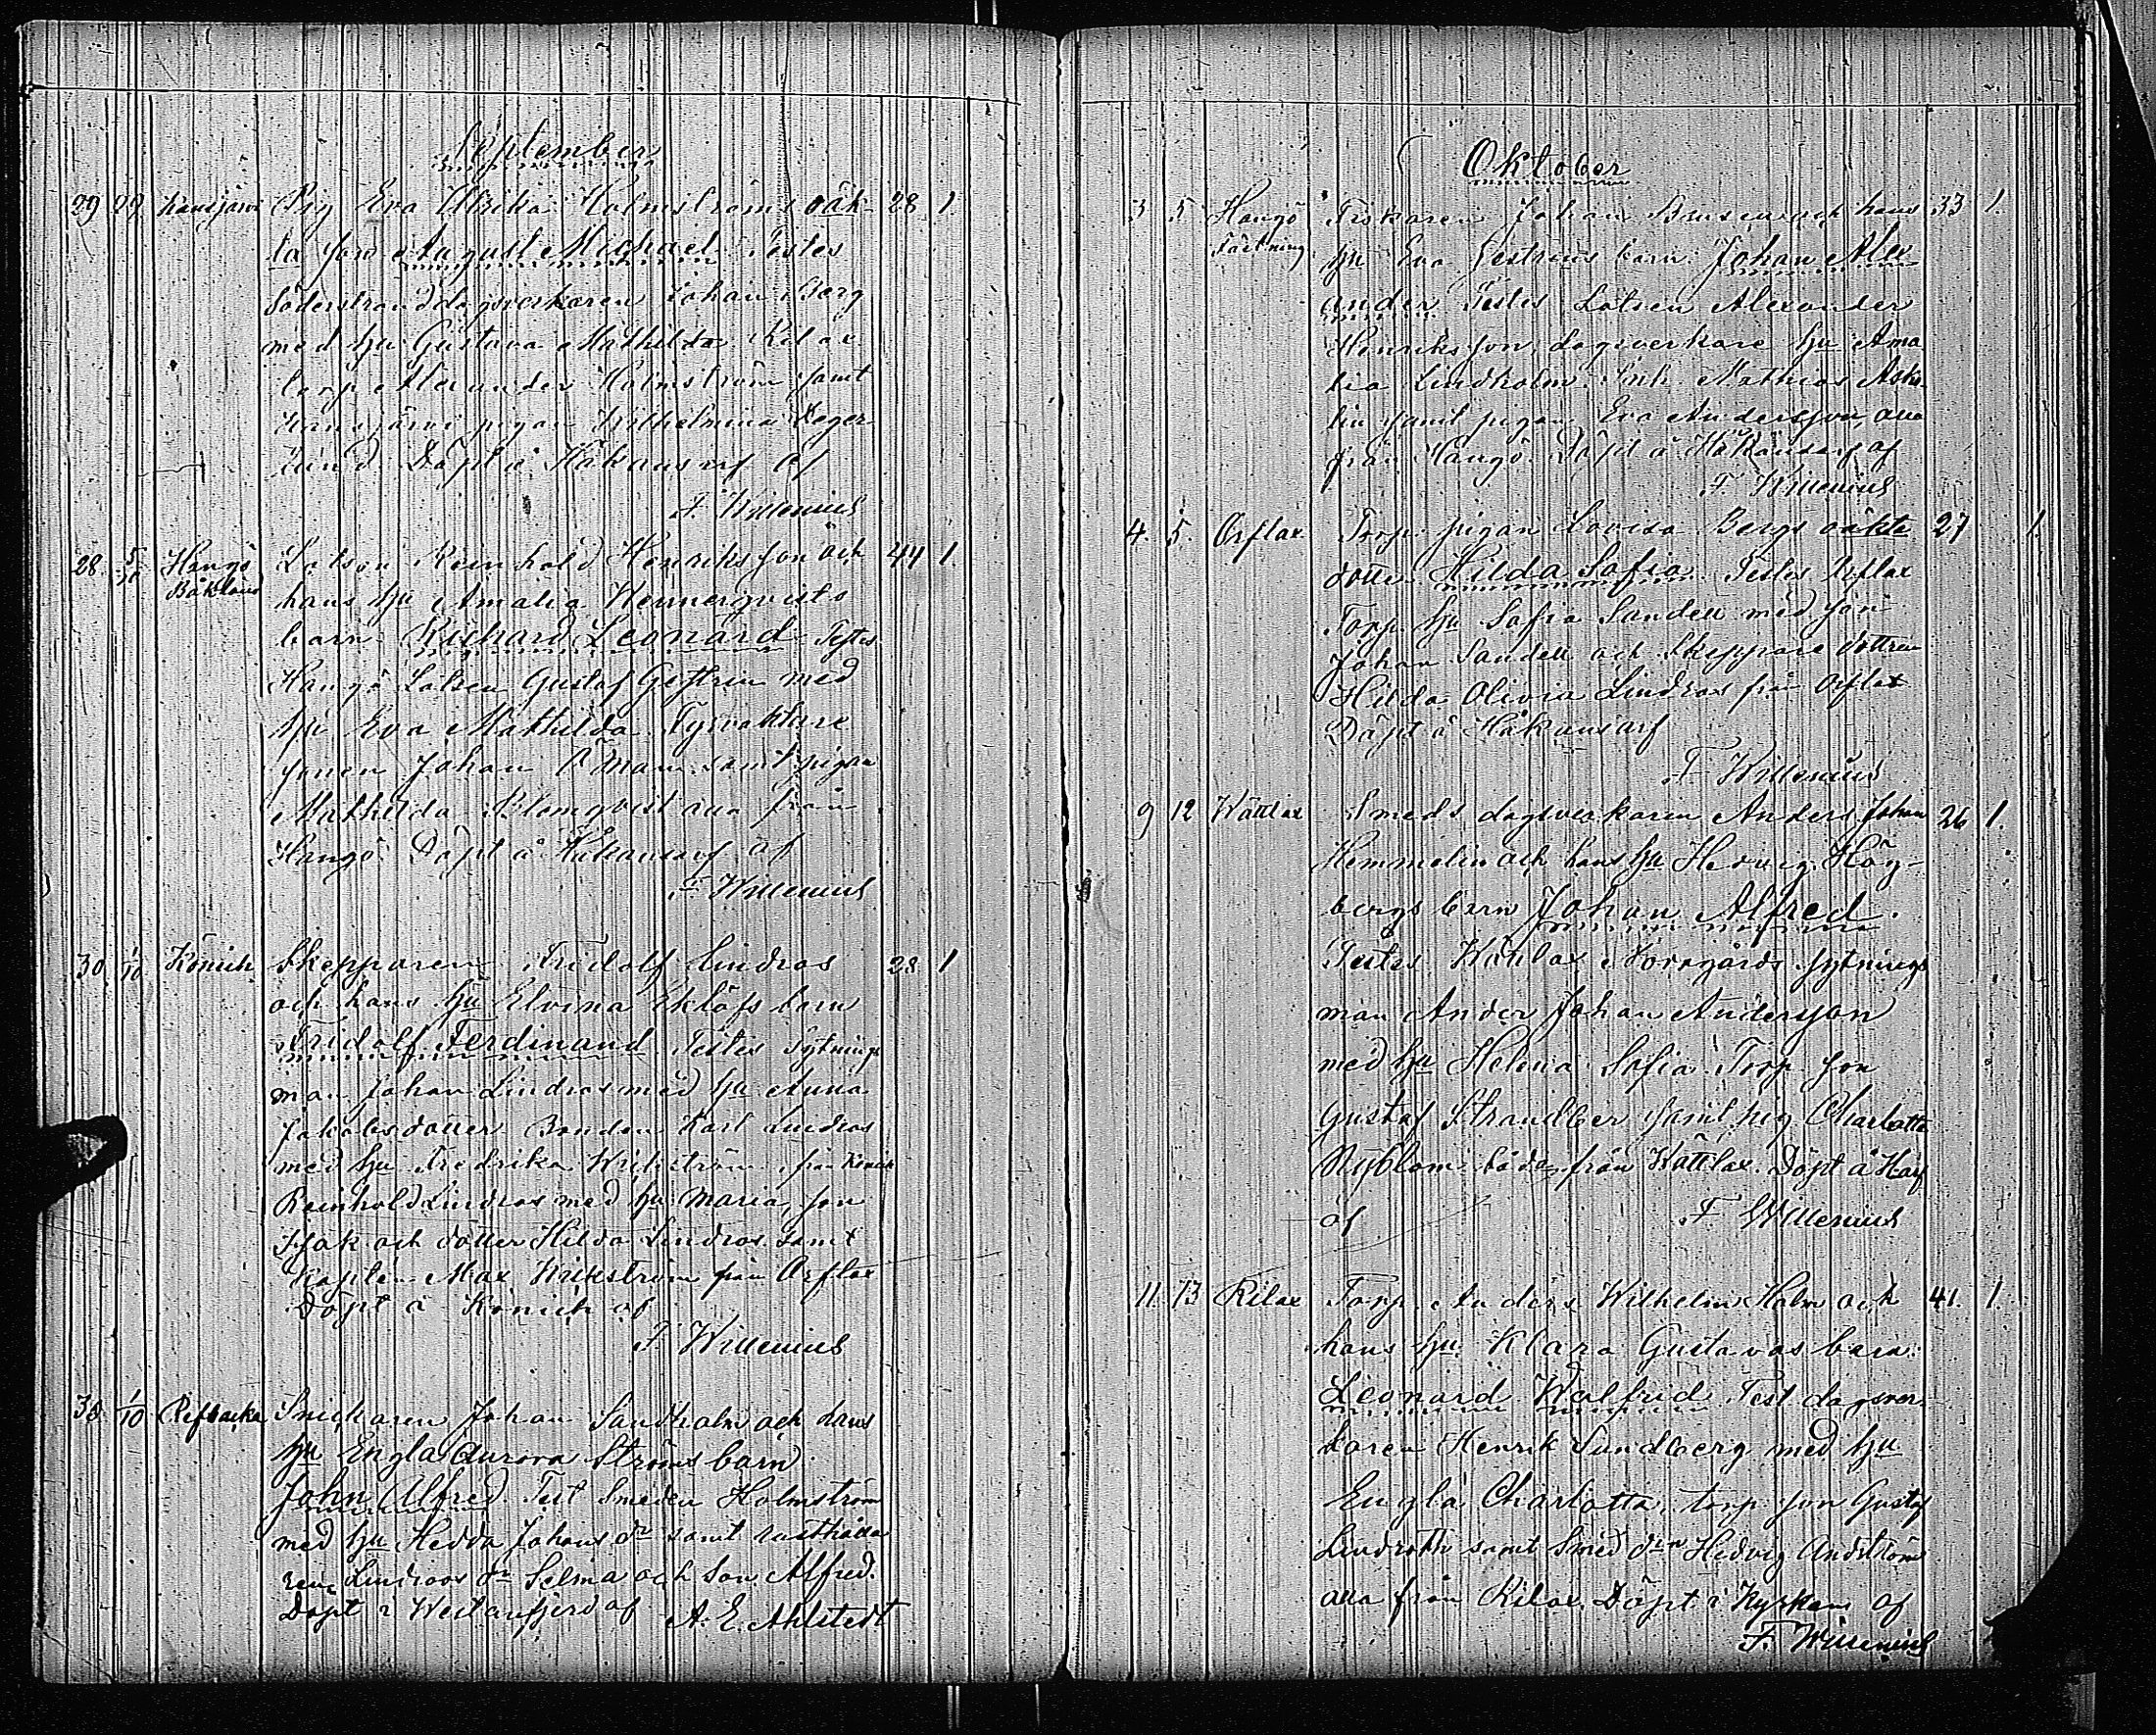 September
29 29 Pig Eva Ulrika Holmströms oäk- 28 1.
ta son August Michael. Testes
Söderstrand dagsverkaren Johan Berg
med hu Gustava Mathilda Rilax
torp. Alexander Holmström samt
pigan Wilhelmina Deger
lund. Döpt å Håkansarf af
F. Willenius
28 5/10 Hangö Lotsen Reinhold Henriksson och 44 1.
Båkland hans hu Amalia Wennerqvists
barn Richard Leonard Testes
Hangö Lotsen Gustaf Gestrin med
hu Eva Mathilda. Fyrvaktare
sonen Johan Öman samt pigan
Mathilda Blomqvist alla från
Hangö. Döpt å Håkansarf af
F. Willenius
30 1/10 Könich Skepparen Fridolf Lindros 28 1
och hans hu Elvina Eklöfs barn
Fridolf Ferdinand. Testes Sytnings
man Johan Lindros med hu Anna
Jakobsdotter Bonden Karl Lindros
med hu Fredrika Wickström, från Könich
Reinhold Lindros med hu Maria, son
Isak och dotter Hilda Lindros samt
Kapten Max Wikström från Orflax
Döpt å Könich af
F. Willenius
30 1/10 Refbacka Snickaren Johan Sandholm och hans
hu Engla Aurora Ströms barn
John Alfred. Test Smeden Holmström
med hu Hedda Johans dr samt rusthålla
rens Lindroos dr Selma och son Alfred.
Döpt i Westanfjerd af A. E. Ahlstedt
Oktober
3 5 Hangö Fiskaren Johan Brusin och hans 33 1.
Fästning hu Eva Gestrins barn Johan Alex
ander. Testes Lotsen Alexander
Henriksson, dagsverkare hu Ama
lia Lindholm. Inh. Mathias
lin samt pigan Eva Andersson, alla
från Hangö. Döpt å Håkansarf af
F. Willenius
4. 5. Orflax Torp. pigan Lovisa Bergs oäkta 27 1.
dotter Hilda Sofia. Testes Orflax
Torp. hu Sofia Sandell med son
Johan Sandell och Skeppare dottren
Hilda Olivia Lindros från Orflax
Döpt å Håkansarf
F Willenius
9 12 Wättlax Smeds dagsverkaren Anders Johan 26 1.
Hemmelin och hans hu Hedvig Hög-
bergs barn Johan Alfred.
Testes Wättlax Norrgårds sytnings
man Ander Johan Andersson
med hu Helena Sofia Torp. son
Gustaf Strandber samt pig Charlotta
Nyblom båda från Wättlax. Döpt å Harf
af F Willenius
11. 13 Rilax Torp. Anders Wilhelm Holm och 41. 1.
hans hu Klara Gustavas barn:
Leonard Walfrid. Test dagsver-
karen Henrik Sundberg med hu
Engla Charlotta, torp. son Gustaf
Lindroth samt Smed drn Hedvig Andström
alla från Rilax. Döpt i Kyrkan af
F. Willenius